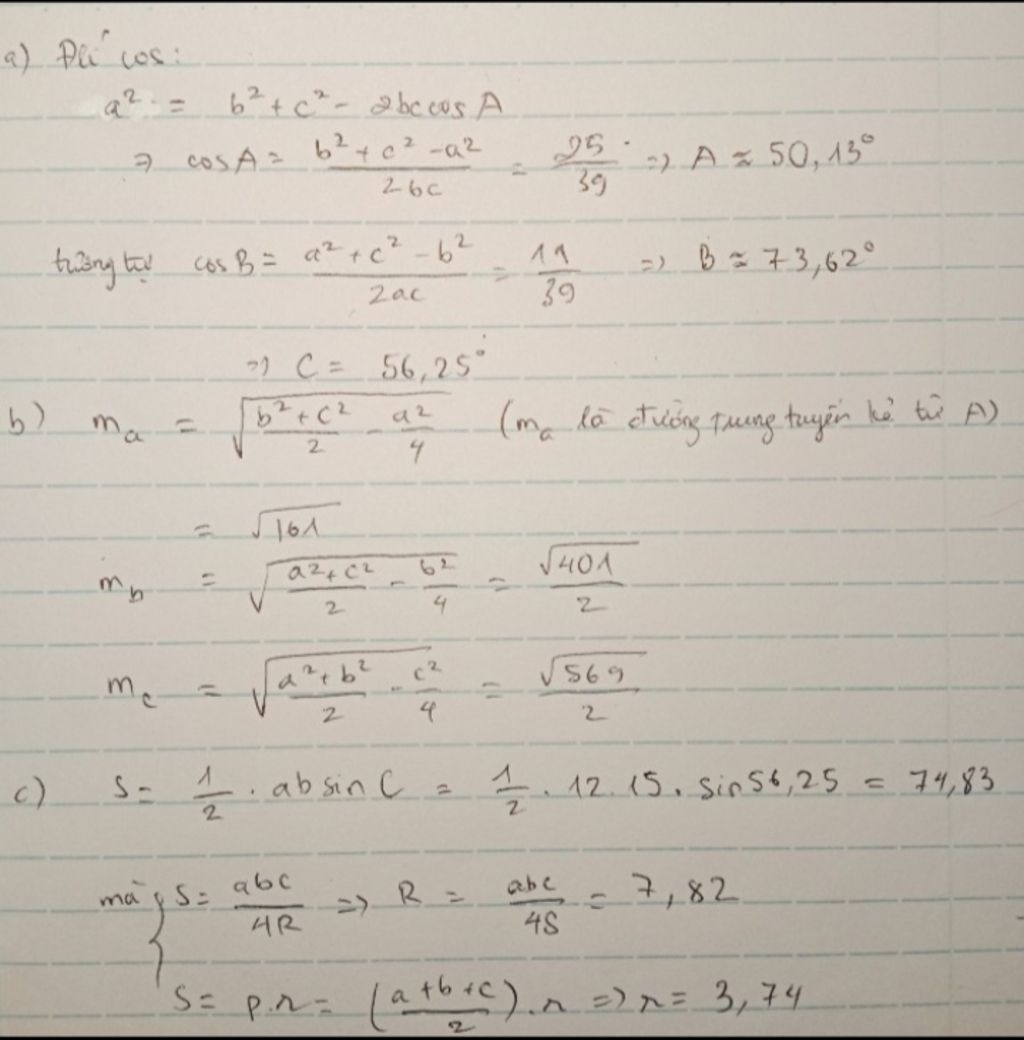 a) Đlí cos:
a² = b² + c² - 2bc cos A
⇒ cos A = (b² + c² - a²)/(2bc) = 25/39 ⇒ A ≈ 50,13°
tương tự cos B = (a² + c² - b²)/(2ac) = 11/39 ⇒ B ≈ 73,62°
⇒ C = 56,25°
b) mₐ = √((b² + c²)/2 - a²/4) (mₐ là đường trung tuyến kẻ từ A)
= √161
m_b = √((a² + c²)/2 - b²/4) = √401/2
m_c = √((a² + b²)/2 - c²/4) = √569/2
c) S = 1/2 . ab sin C = 1/2 . 12. 15. sin 56,25 = 74,83
mà { S = abc/4R ⇒ R = abc/4S = 7,82
S = p.r = ((a + b + c)/2) . r ⇒ r = 3,74